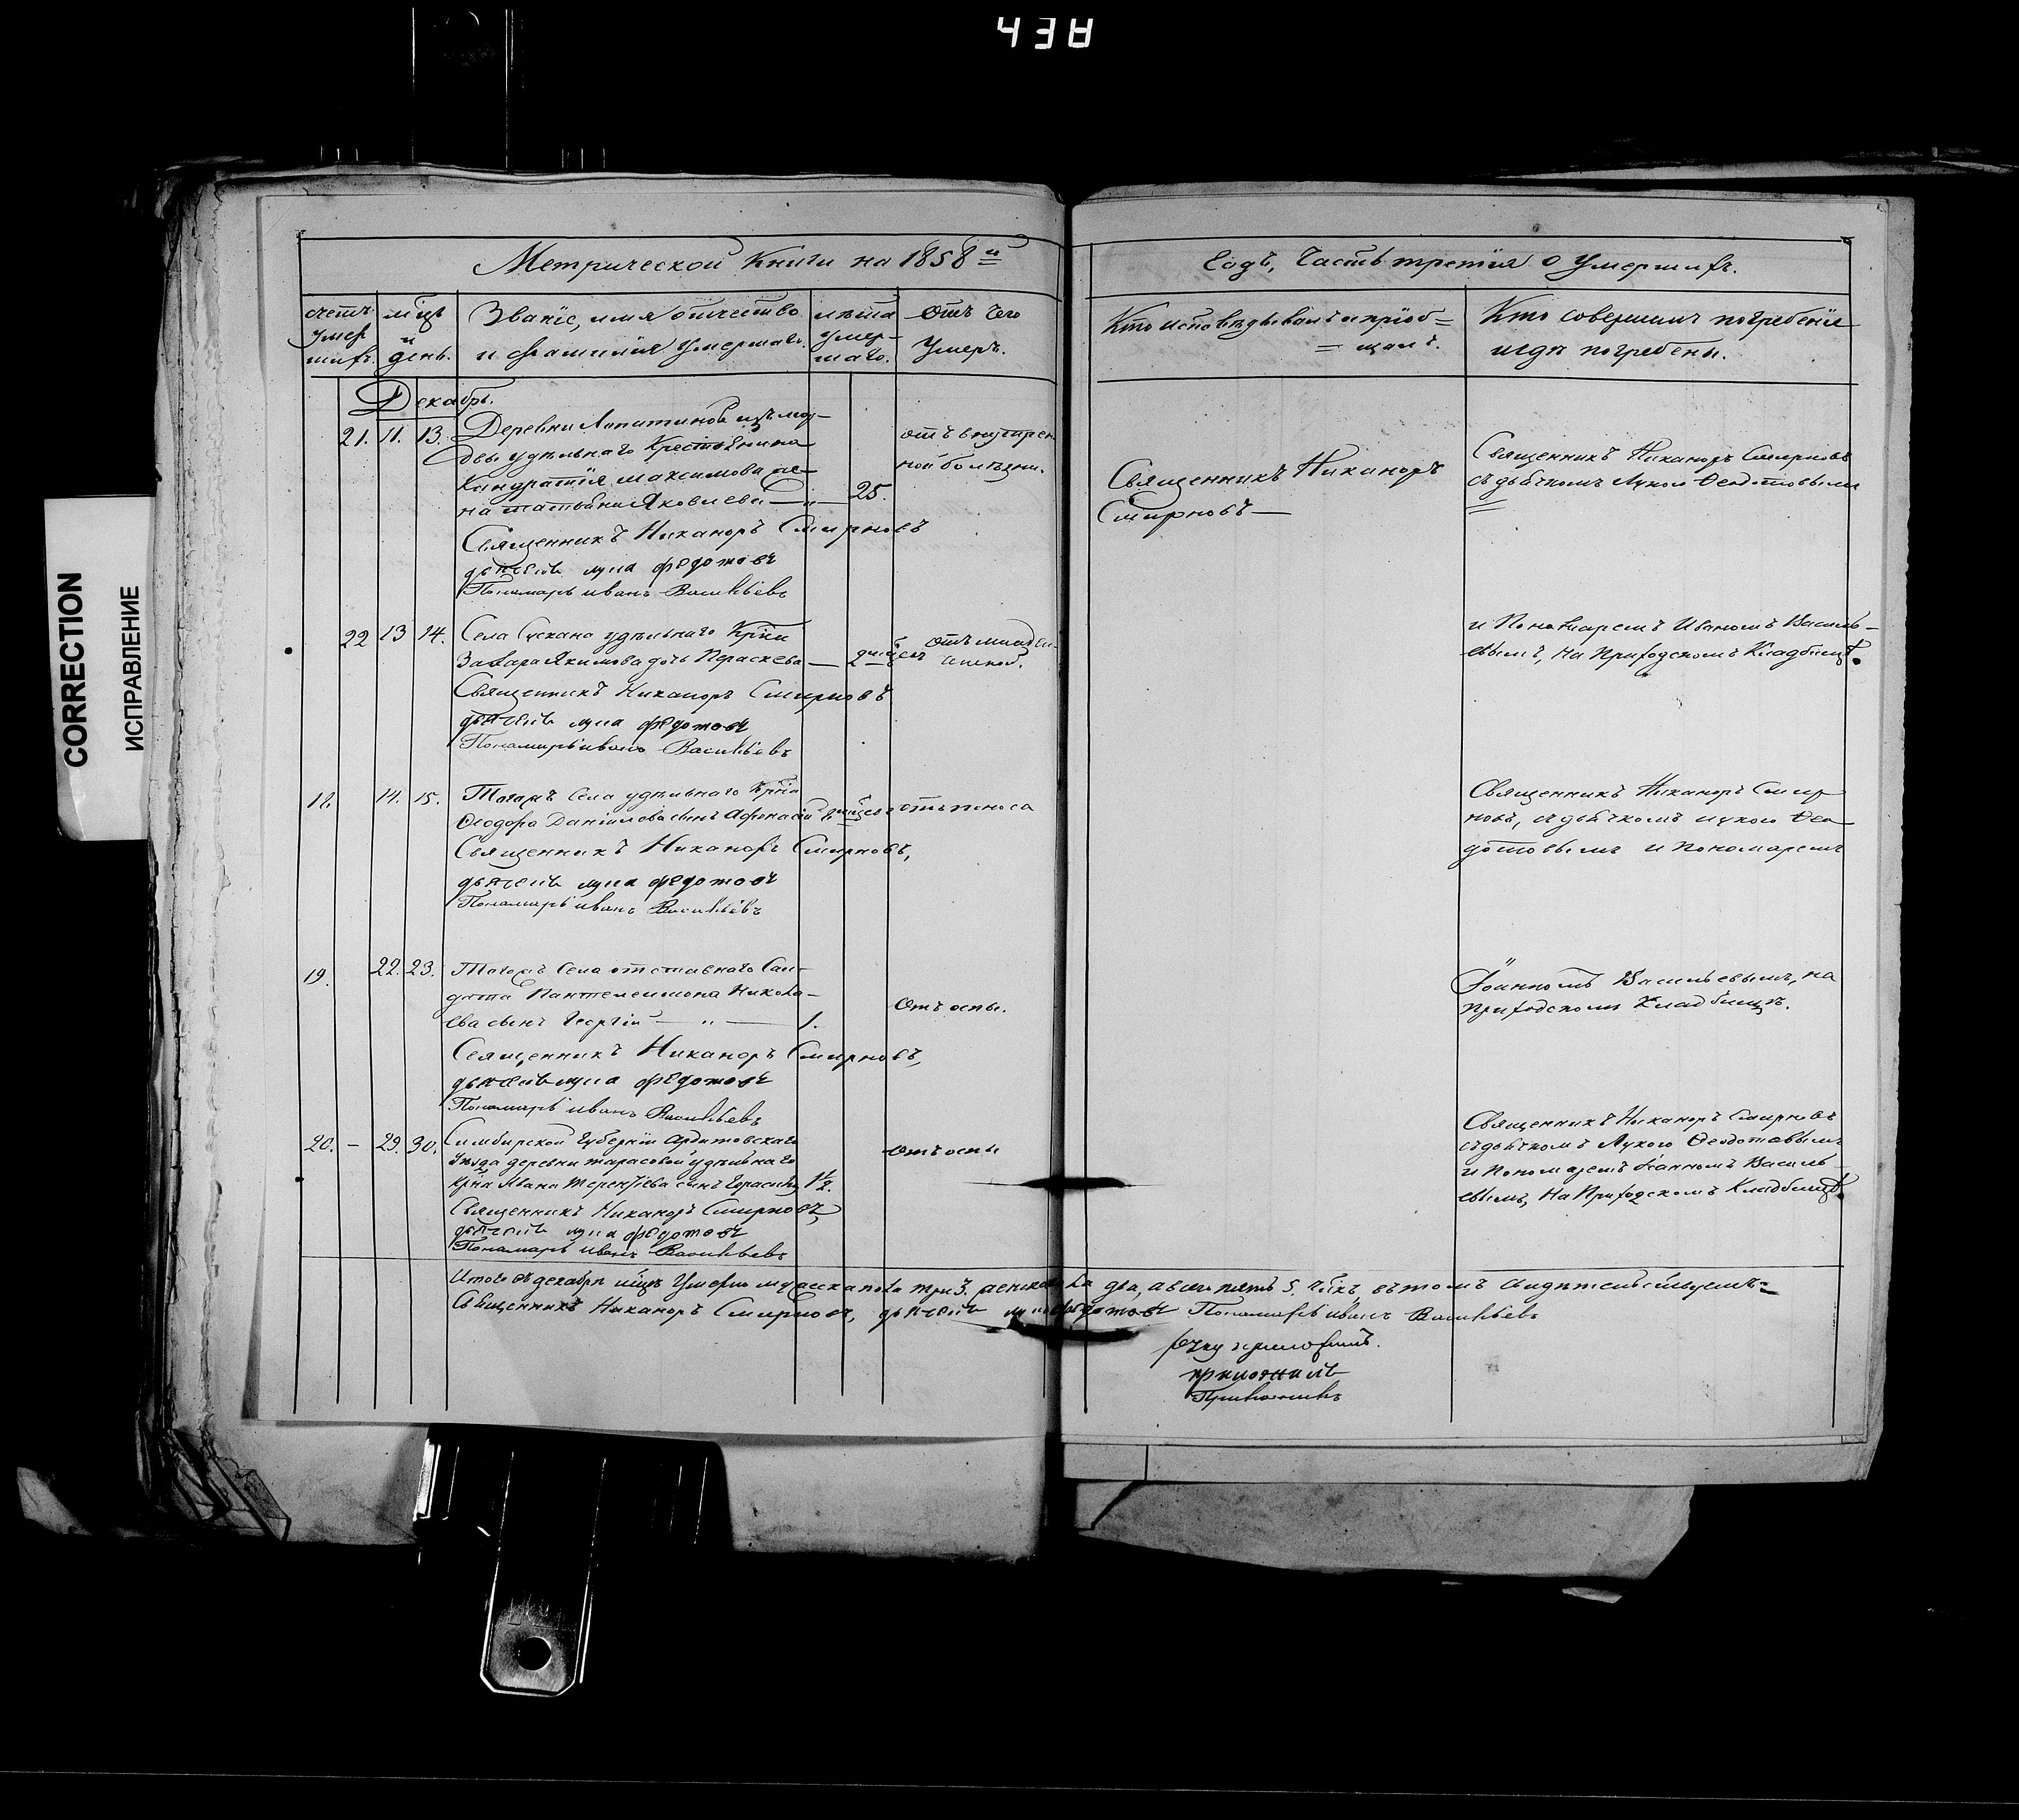 43А
CORRECTION
ИСПРАВЛЕНИЕ
Метрической Книги на 1858й
Годъ, Часть третія о Умершихъ.
счетъ умершихъ.
мцъ и день.
Званіе, имя отчество
и фамилія умершаго.
лѣта умершаго.
Отъ чего
умеръ.
Кто исповѣдывалъ и пріоб=
=щалъ.
Кто совершилъ погребеніе
и гдѣ погребены.
Декабрь.
21. 11. 13. Деревни Лопатиной изъ морд-
вы удѣльнаго Крестьянина
Кондратія Максимова же-
на Татьяна Яковлева — 25.
отъ внутрен
ной болѣзни.
Священникъ Никаноръ
Смирновъ —
Священникъ Никаноръ Смирновъ
съ дьячкомъ Лукою Ѳеодотовымъ
Священникъ Никаноръ Смирновъ
дьячекъ лука федотовъ
Пономарь иванъ Васильевъ
22 13 14. Села Сускана удѣльнаго Крна
Захара Якимова дочь Параскева —
отъ младен-
ческой.
и Пономаремъ Иваномъ Василь-
евымъ, на Приходскомъ Кладбищѣ.
Священникъ Никаноръ Смирновъ
дьячекъ лука федотовъ
Пономарь иванъ Васильевъ
18. 14. 15. Тогожъ Села удѣльнаго Крна
Ѳеодора Даніилова сынъ Афанасій
отъ поноса
Священникъ Никаноръ Смир
новъ, съ дьячкомъ Лукою Ѳео
дотовымъ и пономаремъ
Священникъ Никаноръ Смирновъ,
дьячекъ лука федотовъ
Пономарь иванъ Васильевъ
19. 22. 23. Тогожъ Села отставнаго Сол-
дата Пантелеимона Никола-
ева сынъ Георгій — " — 1.
Отъ оспы.
Іоанномъ Васильевымъ, на
приходскомъ Кладбищѣ.
Священникъ Никаноръ Смирновъ,
дьячекъ лука федотовъ
Пономарь иванъ Васильевъ
20. — 29. 30. Симбирской Губерніи Ардатовскаго
Уѣзда деревни Тарасовой удѣльнаго
крна Ивана Терентіева сынъ Герасимъ 1/2.
отъ оспы
Священникъ Никаноръ Смирновъ
съ дьячкомъ Лукою Ѳеодотовымъ
и Пономаремъ Іоанномъ Василь-
евымъ, На Приходскомъ Кладбищѣ.
Священникъ Никаноръ Смирновъ,
дьячекъ лука федотовъ
Пономарь иванъ Васильевъ
Итого въ декабрѣ мцѣ Умерло мужеска пола три 3. женска два, а всего пять 5. чвкъ, въ томъ свидѣтельствуемъ=
Священникъ Никаноръ Смирновъ, дьячекъ лука федотовъ Пономарь иванъ Васильевъ
руку приложилъ.
приложилъ
Приложилъ